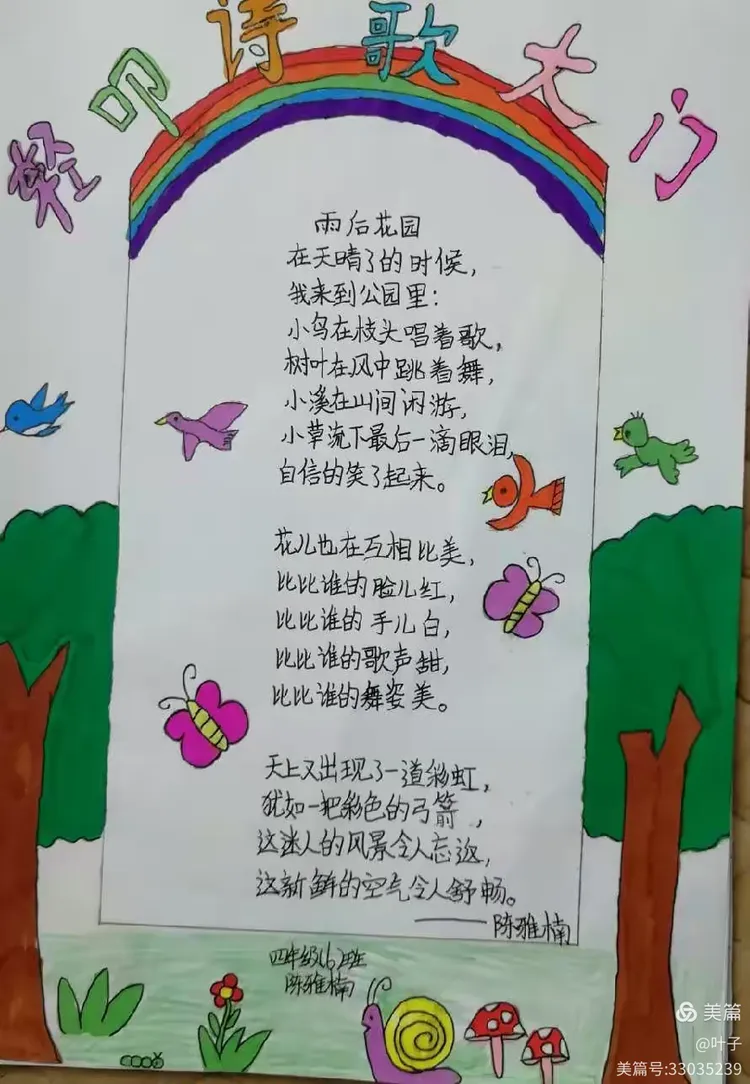 轻叩诗歌大门
雨后花园
在天晴了的时候，
我来到公园里：
小鸟在枝头唱着歌，
树叶在风中跳着舞，
小溪在山间闲游，
小草流下最后一滴眼泪，
自信的笑了起来。
花儿也在互相比美，
比比谁的脸儿红，
比比谁的手儿白，
比比谁的歌声甜，
比比谁的舞姿美。
天上又出现了一道彩虹，
犹如一把彩色的弓箭，
这迷人的风景令人忘返，
这新鲜的空气令人舒畅。
——陈雅楠
四年级(6)班
陈雅楠
美篇
@叶子
美篇号:33035239